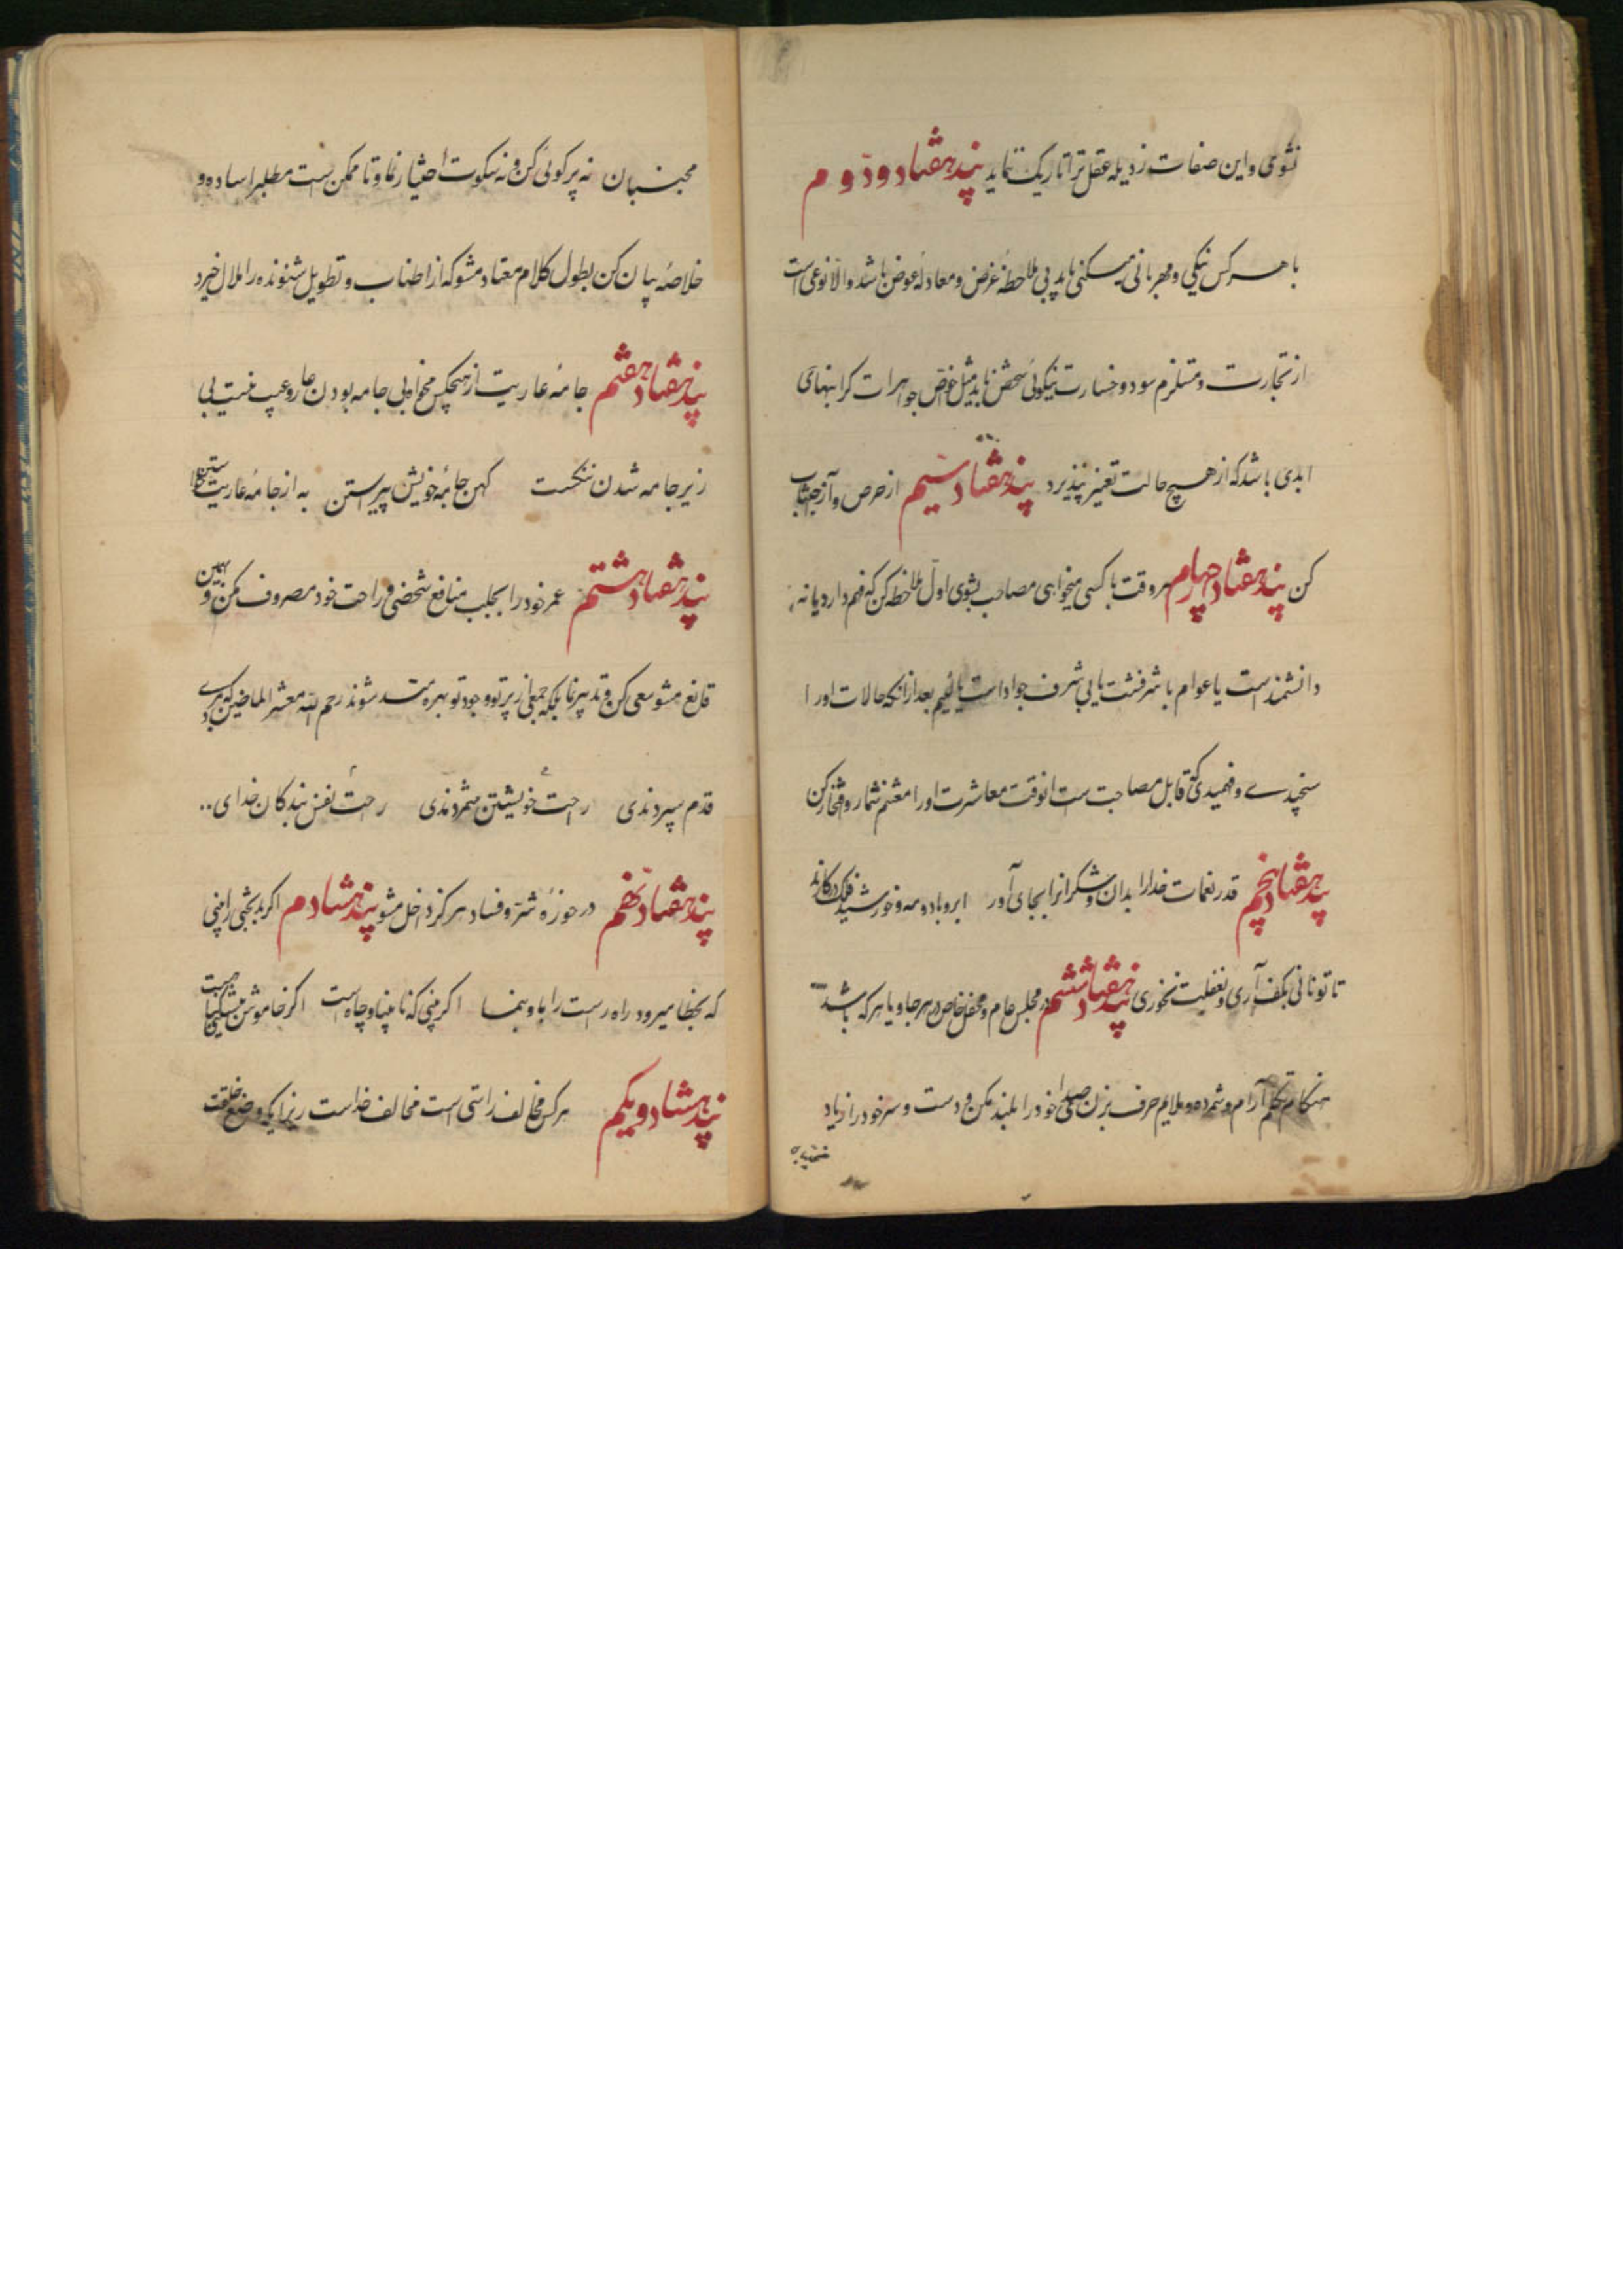 نشوی و این صفات رذیله عقل ترا تاریک ننماید پند هفتاد و دوم
با هر کس نیکی و مهربانی میکنی باید بی ملاحظهٔ غرض و معادلهٔ عوض باشد والا نوعی است
از تجارت و مستلزم سود و خسارت نیکوئی شخص باید مثل جواهرات کرانبهای
ابدی باشد که از هیچ حالت تغییر نپذیرد پند هفتاد سیم از حرص و آز اجتناب
کن پند هفتاد چهارم هر وقت با کسی میخواهی مصاحب بشوی اول ملاحظه کن که فهم دارد یا نه
دانشمند است یا عوام با شرفست یا بی شرف جواد است یا لئیم بعد از آنکه حالات او را
سنجیدی و فهمیدی که قابل مصاحبت است انوقت معاشرت او را مغتنم شمار و افتخار کن
پند هفتاد پنجم قدر نعمات خدا را بدان و شکر انرا بجای آور ابر و باد و مه و خورشید و فلک در کارند
تا تو نانی بکف آری و بغفلت نخوری پند هفتاد ششم در مجلس عام و محفل خاص در هر جا و با هر که باشد
هنگام تکلم آرام و شمرده و ملایم حرف بزن صدای خود را بلند مکن و دست و سر خود را زیاد
مجنبان نه پر کوئی کن و نه سکوت اختیار نما و تا ممکن است مطلب را ساده و
خلاصه بیان کن بطول کلام معتاد مشو که از اطناب و تطویل شنونده را ملال خیزد
پند هفتاد هفتم جامهٔ عاریت از هیچکس مخواه بی جامه بودن عار و عیب نیست بی
زیر جامه شدن ننکست کهن جامهٔ خویش پیراستن به از جامهٔ عاریت خواستن
پند هفتاد هشتم عمر خود را بجلب منافع شخصی و راحت خود مصروف مکن و بهمین
قانع مشو سعی کن و تدبیر نما بلکه جمعی از پرتو وجود تو بهره‌مند شوند رحم الله معشر الماضین که بمردی
قدم سپردندی راحت خویشتن نشمردندی راحت نفس بندکان خدای
پند هفتاد نهم در حوزهٔ شر و فساد هرکز داخل مشو پند هشتادم اکر بدبختی را بینی
که بخطا میرود راه راست را باو بنما اکر بینی که نابینا و چاه است اکر خاموش بنشینی کناه است
پند هشتاد و یکم هر کس مخالف راستی است مخالف خداست زیرا که وضع خلقت